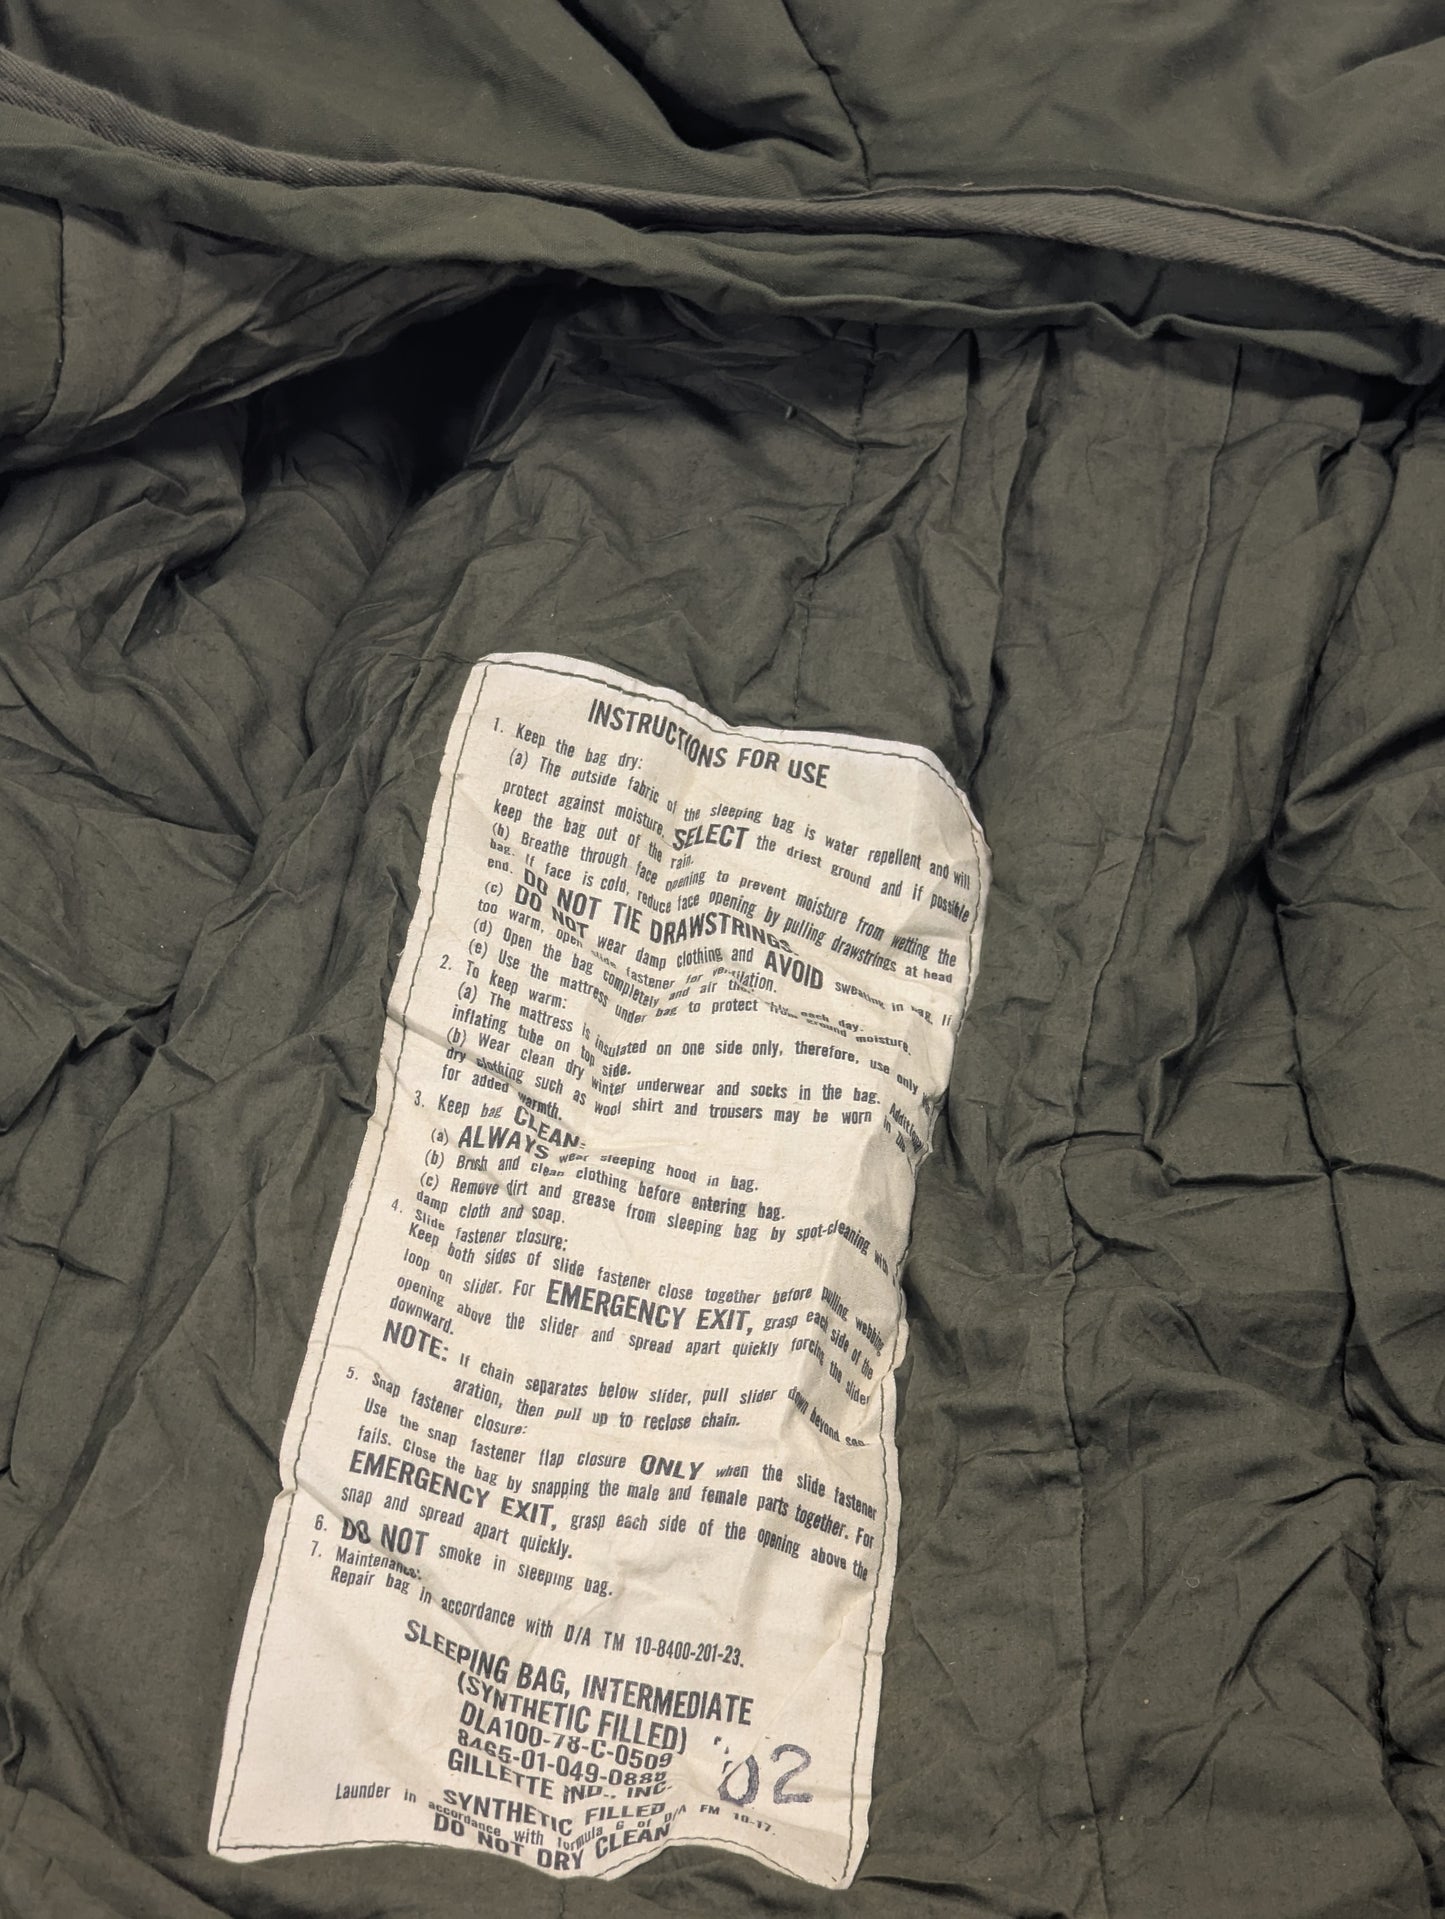 INSTRUCTIONS FOR USE
1. Keep the bag dry:
(a) The outside fabric of the sleeping bag is water repellent and will
protect against moisture. SELECT the driest ground and if possible
keep the bag out of the rain.
(b) Breathe through face opening to prevent moisture from wetting the
bag. If face is cold, reduce face opening by pulling drawstrings at head
end. DO NOT TIE DRAWSTRINGS.
(c) DO NOT wear damp clothing and AVOID sweating in bag. If
too warm, open slide fastener for ventilation.
(d) Open the bag completely and air each day.
(e) Use the mattress under bag to protect from ground moisture.
2. To keep warm:
(a) The mattress is insulated on one side only, therefore, use only
inflating tube on top side.
(b) Wear clean dry winter underwear and socks in the bag. Additional
dry clothing such as wool shirt and trousers may be worn in
for added warmth.
3. Keep bag CLEAN:
(a) ALWAYS wear sleeping hood in bag.
(b) Brush and clean clothing before entering bag.
(c) Remove dirt and grease from sleeping bag by spot-cleaning with
damp cloth and soap.
4. Slide fastener closure:
Keep both sides of slide fastener close together before pulling webbing
loop on slider. For EMERGENCY EXIT, grasp each side of the
opening above the slider and spread apart quickly forcing the slider
downward.
NOTE: If chain separates below slider, pull slider down beyond sep-
aration, then pull up to reclose chain.
5. Snap fastener closure:
Use the snap fastener flap closure ONLY when the slide fastener
fails. Close the bag by snapping the male and female parts together. For
EMERGENCY EXIT, grasp each side of the opening above the
snap and spread apart quickly.
6. DO NOT smoke in sleeping bag.
7. Maintenance:
Repair bag in accordance with D/A TM 10-8400-201-23.
SLEEPING BAG, INTERMEDIATE
(SYNTHETIC FILLED)
DLA100-78-C-0509
8465-01-049-0888
GILLETTE IND., INC.
02
SYNTHETIC FILLED
Launder in accordance with formula G of D/A FM 10-17.
DO NOT DRY CLEAN